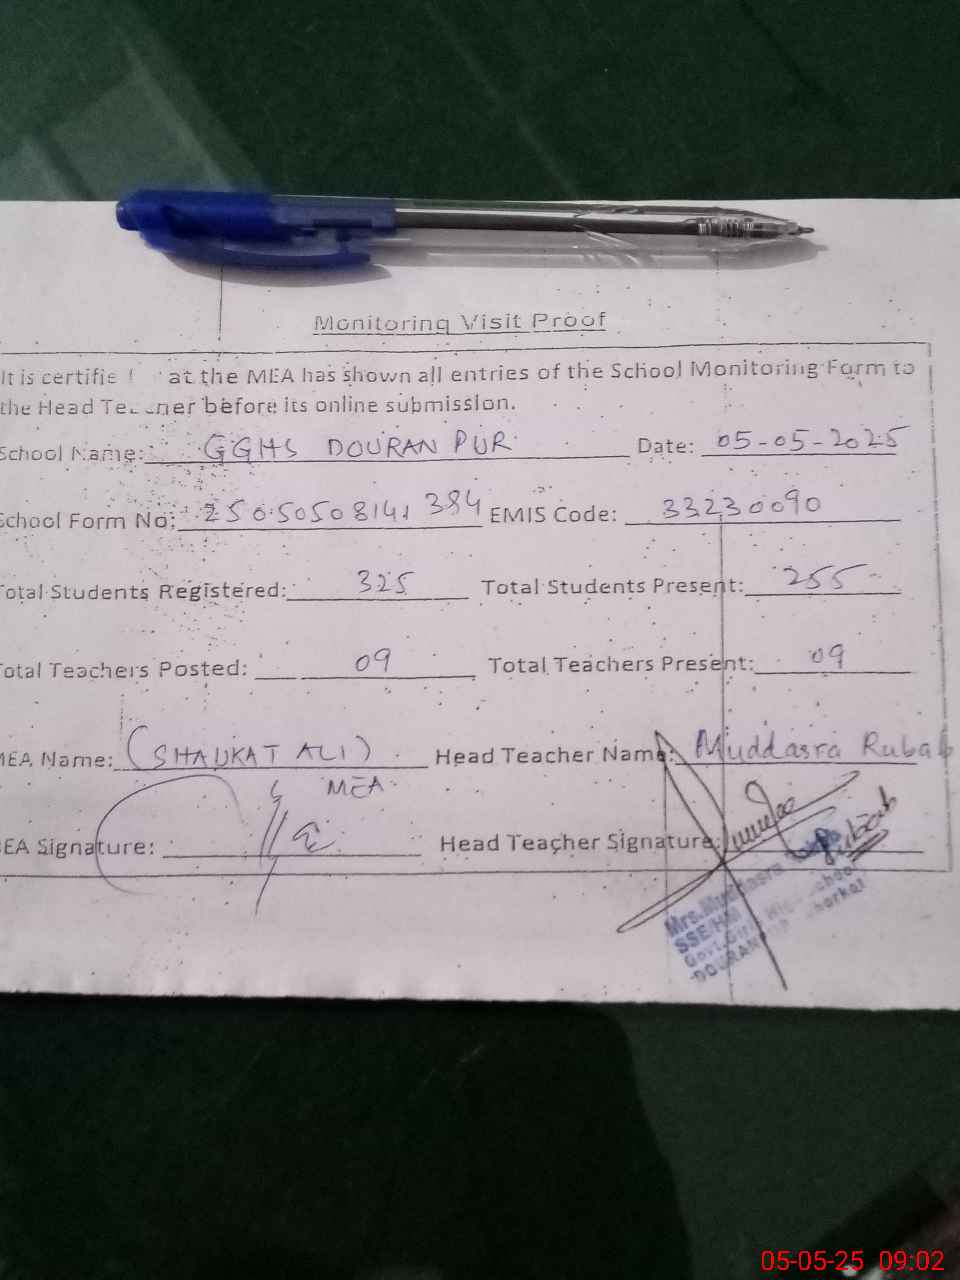 Monitoring Visit Proof
It is certifie at the MEA has shown all entries of the School Monitoring Form to
the Head before its online submission.
School Name: GGHS DOURAN PUR Date: 05-05-2025
School Form No: 25050508141384 EMIS Code: 33230090
Total Students Registered: 325 Total Students Present: 255
Total Teachers Posted: 09 Total Teachers Present: 09
MEA Name: (SHAUKAT ALI) Head Teacher Name: Muddasra Rubab
MEA
MEA Signature: Head Teacher Signature:
SSE/HM
DOURAN PUR
05-05-25 09:02